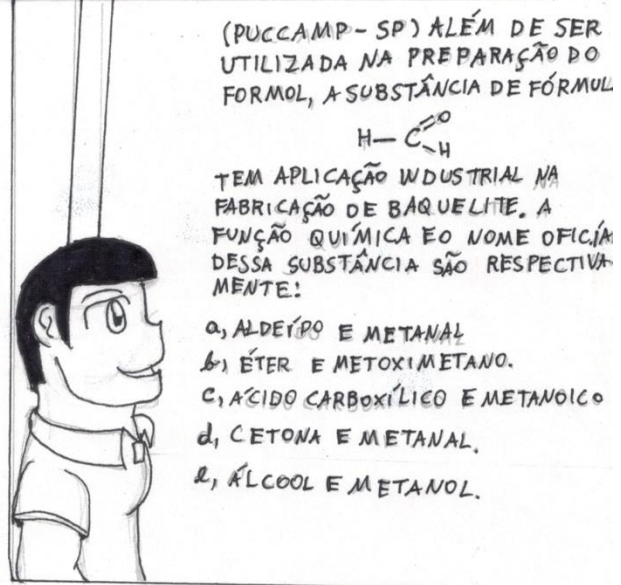 (PUCCAMP - SP) ALÉM DE SER
UTILIZADA NA PREPARAÇÃO DO
FORMOL, A SUBSTÂNCIA DE FÓRMUL
H—C=O
H
TEM APLICAÇÃO INDUSTRIAL NA
FABRICAÇÃO DE BAQUELITE. A
FUNÇÃO QUÍMICA E O NOME OFICIA
DESSA SUBSTÂNCIA SÃO RESPECTIVA-
MENTE:
a, ALDEÍDO E METANAL
b, ÉTER E METOXIMETANO.
C, ÁCIDO CARBOXÍLICO E METANOICO
d, CETONA E METANAL.
e, ÁLCOOL E METANOL.